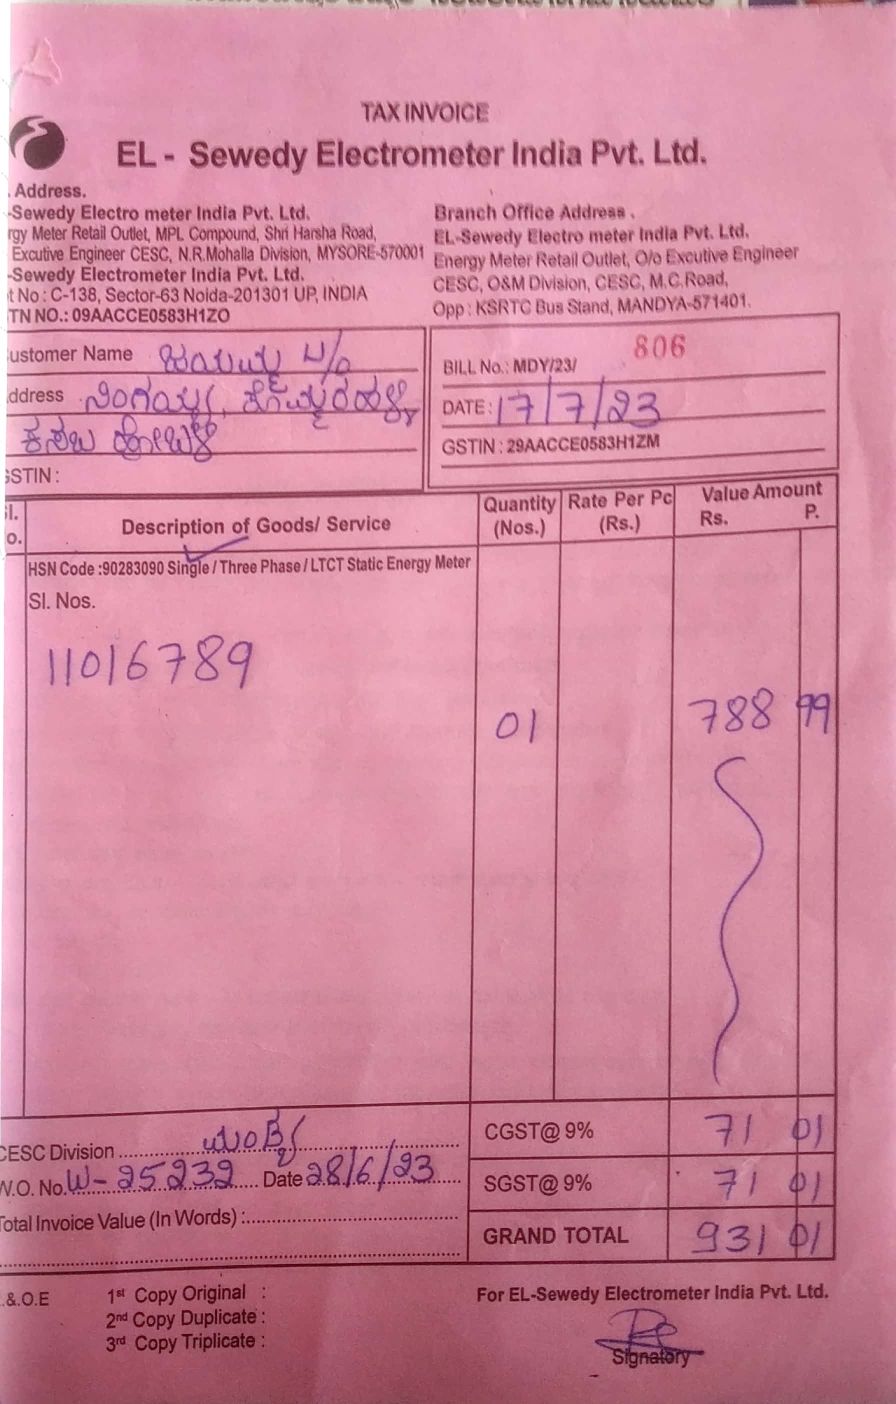 TAX INVOICE
EL - Sewedy Electrometer India Pvt. Ltd.
Address.
-Sewedy Electro meter India Pvt. Ltd.
rgy Meter Retail Outlet, MPL Compound, Shri Harsha Road,
Excutive Engineer CESC, N.R.Mohalla Division, MYSORE-570001
-Sewedy Electrometer India Pvt. Ltd.
t No : C-138, Sector-63 Noida-201301 UP, INDIA
TN NO.: 09AACCE0583H1ZO
Branch Office Address .
EL-Sewedy Electro meter India Pvt. Ltd.
Energy Meter Retail Outlet, O/o Excutive Engineer
CESC, O&M Division, CESC, M.C.Road,
Opp : KSRTC Bus Stand, MANDYA-571401.
ustomer Name
ddress
GSTIN :
BILL No.: MDY/23/ 806
DATE : 17/7/23
GSTIN : 29AACCE0583H1ZM
Sl. No. Description of Goods/ Service Quantity (Nos.) Rate Per Pc (Rs.) Value Amount Rs. P.
HSN Code :90283090 Single / Three Phase / LTCT Static Energy Meter
Sl. Nos.
11016789
01 788 99
CESC Division
W.O. No. W-25232 Date 28/6/23
Total Invoice Value (In Words) :
CGST@ 9% 71 01
SGST@ 9% 71 01
GRAND TOTAL 931 01
.&.O.E
1st Copy Original :
2nd Copy Duplicate :
3rd Copy Triplicate :
For EL-Sewedy Electrometer India Pvt. Ltd.
Signatory